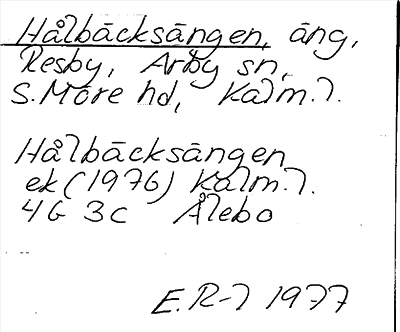 Hålbäcksängen, äng,
Resby, Arby sn,
S. Möre hd, Kalm. l.
Hålbäcksängen
ek (1976) Kalm. l.
4G 3c Ålebo
E. R-l 1977